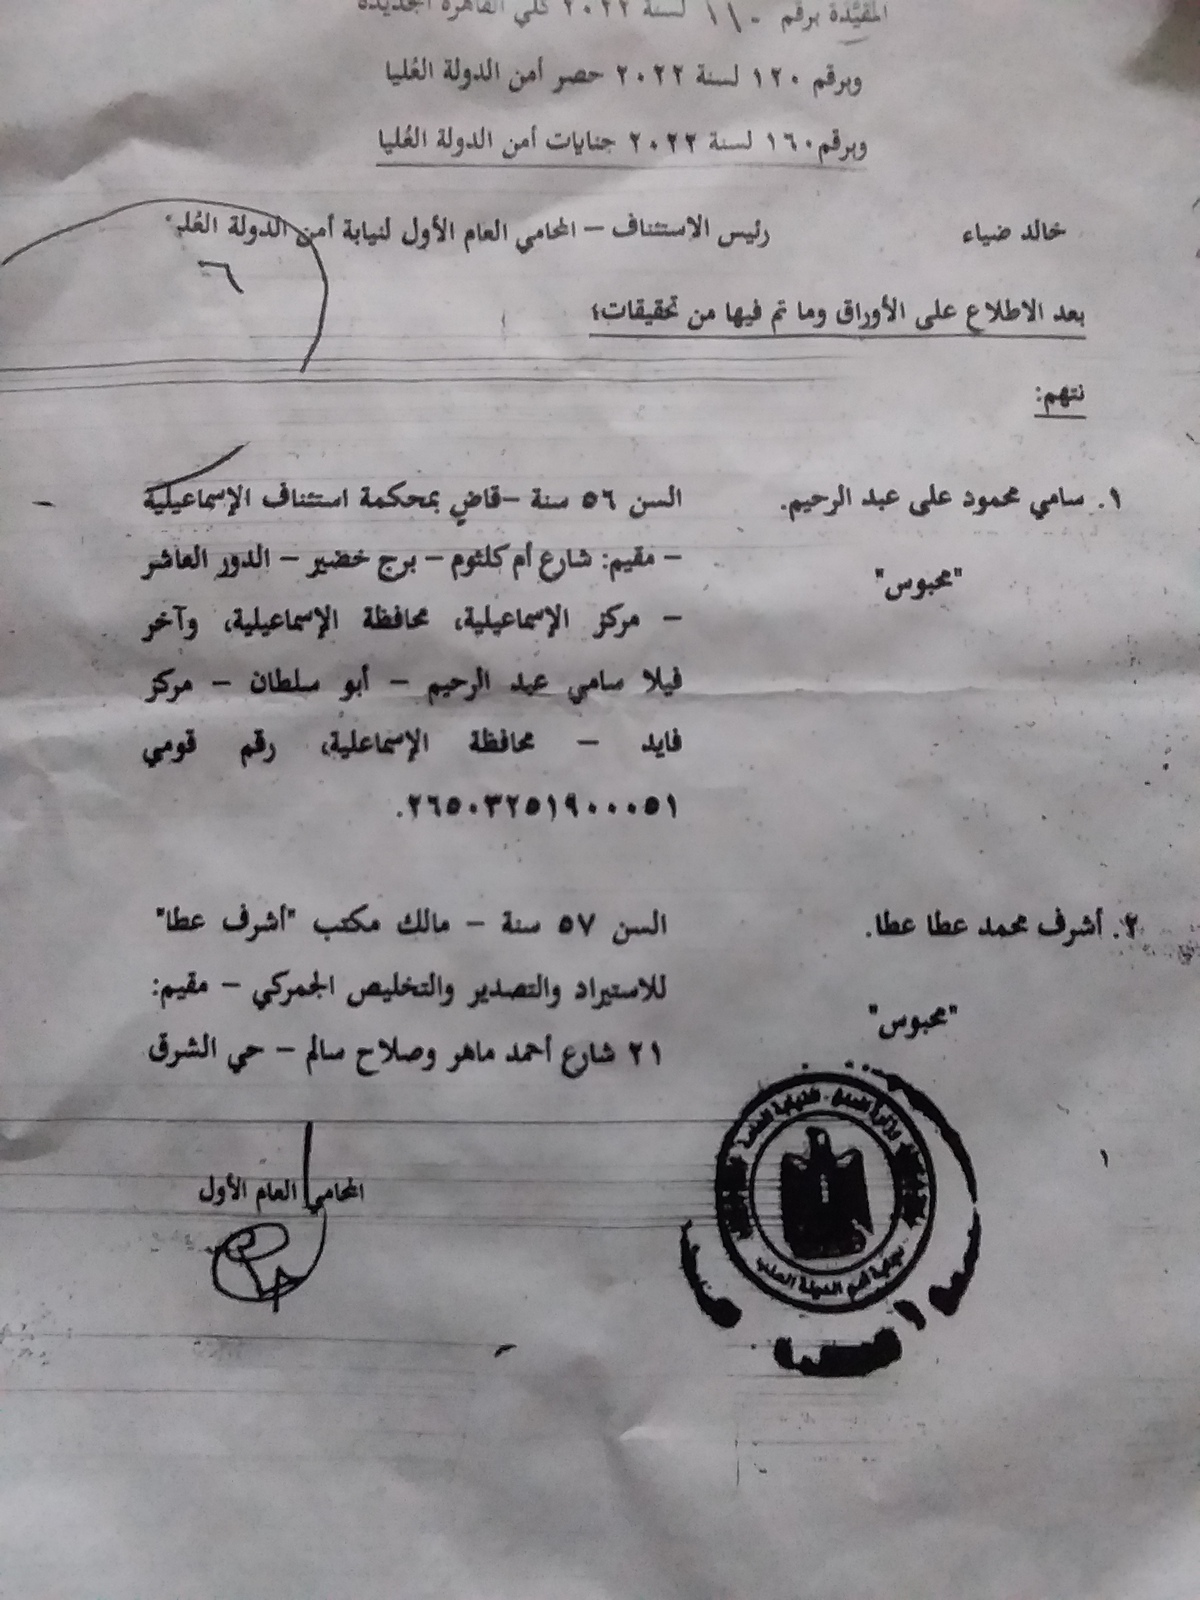 المقيّدة برقم ١١٠ لسنة ٢٠٢٢ كلي القاهرة الجديدة
وبرقم ١٢٠ لسنة ٢٠٢٢ حصر أمن الدولة العُليا
وبرقم ١٦٠ لسنة ٢٠٢٢ جنايات أمن الدولة العُليا
خالد ضياء رئيس الاستئناف – المحامي العام الأول لنيابة أمن الدولة
٦
بعد الاطلاع على الأوراق وما تم فيها من تحقيقات؛
نتهم:
١. سامي محمود على عبد الرحيم. السن ٥٦ سنة –قاضٍ بمحكمة استئناف الإسماعيلية
– مقيم: شارع أم كلثوم – برج خضير – الدور العاشر
"محبوس"
– مركز الإسماعيلية، محافظة الإسماعيلية، وآخر
فيلا سامي عبد الرحيم – أبو سلطان – مركز
فايد – محافظة الإسماعلية، رقم قومي
٢٦٥٠٣٢٥١٩٠٠٠٥١.
٢. أشرف محمد عطا عطا. السن ٥٧ سنة – مالك مكتب "أشرف عطا"
للاستيراد والتصدير والتخليص الجمركي – مقيم:
"محبوس"
٢١ شارع أحمد ماهر وصلاح سالم – حي الشرق
١
المحامي العام الأول
وزارة العدل - النيابة العامة
نيابة أمن الدولة العليا